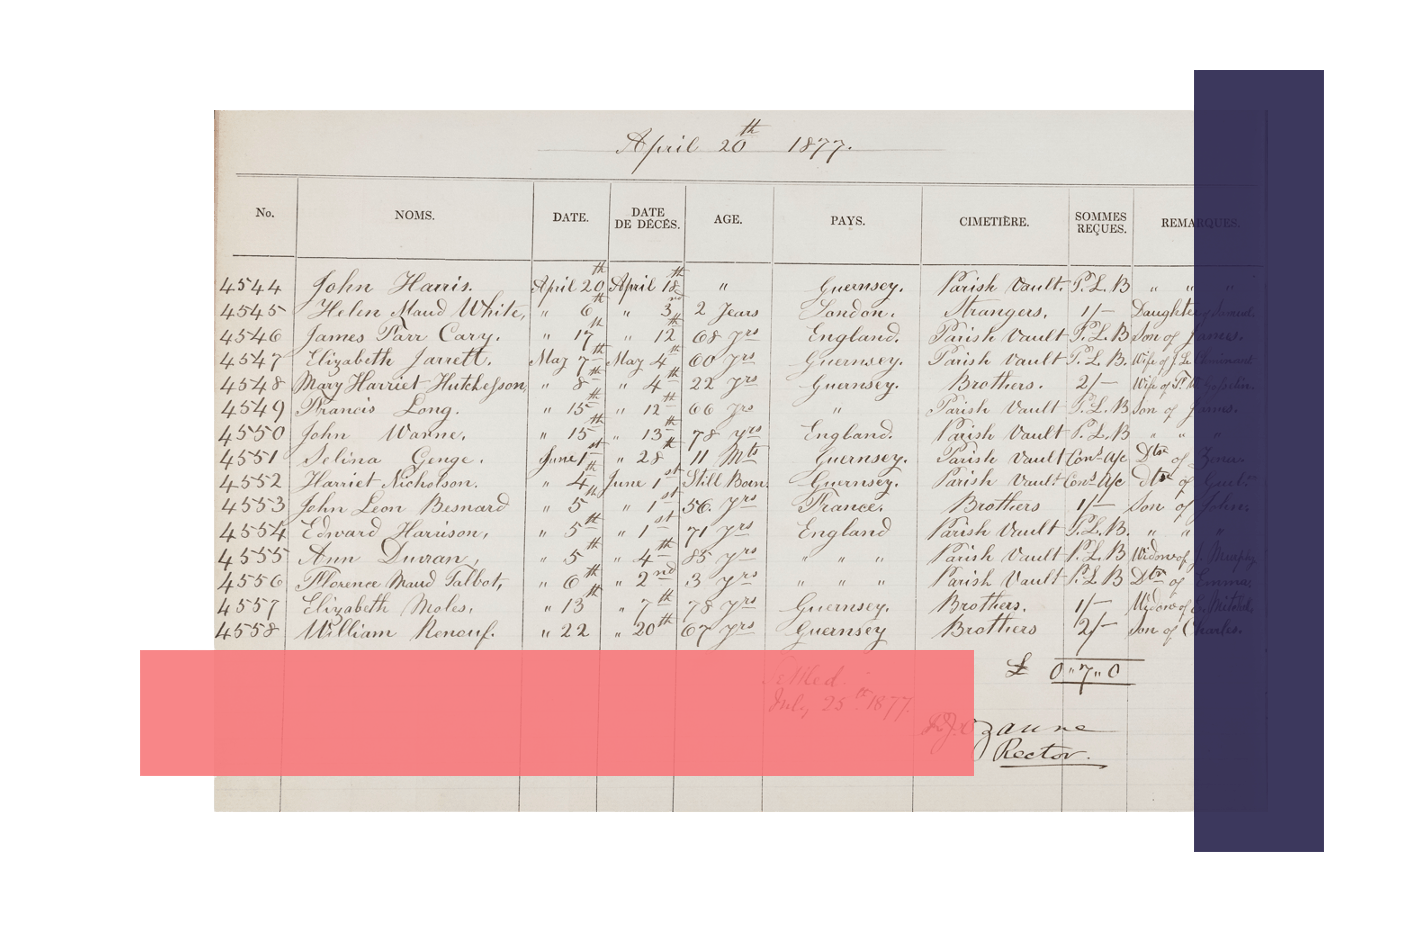 April 20th 1877.
No. NOMS. DATE. DATE DE DÉCÈS. AGE. PAYS. CIMETIÈRE. SOMMES REÇUES. REMARQUES.
4544 John Harris. April 20th April 18th " Guernsey. Parish Vault. P.L.B " " "
4545 Helen Maud White, " 6th " 3rd 2 Years London. Strangers. 1/- Daughter of
4546 James Parr Cary. " 17th " 12th 68 yrs England. Parish Vault P.L.B Son of James.
4547 Elizabeth Jarrett. May 7th May 4th 60 yrs Guernsey. Parish Vault P.L.B. Wife of J.L.
4548 Mary Harriet Hutchesson, " 8th " 4th 22 yrs Guernsey. Brothers. 2/- Wife of
4549 Francis Long. " 15th " 12th 66 yrs " Parish Vault P.L.B Son of James.
4550 John Warne. " 15th " 13th 78 yrs England. Parish Vault P.L.B " " "
4551 Selina Genge. June 1st " 28th 11 Mts Guernsey. Parish Vault Con's a/c Dter of
4552 Harriet Nicholson. " 4th June 1st Still Born. Guernsey. Parish Vault Con's a/c Dter of
4553 John Leon Besnard " 5th " 1st 56. yrs France. Brothers 1/- Son of John.
4554 Edward Harrison, " 5th " 1st 71 yrs England Parish Vault P.L.B. " " "
4555 Ann Durran " 5th " 4th 85 yrs " " " Parish Vault P.L.B Widow of J. Murphy
4556 Florence Maud Talbot, " 6th " 2nd 3 yrs " " " Parish Vault P.L.B Dter of Emma.
4557 Elizabeth Moles, " 13th " 7th 78 yrs Guernsey. Brothers. 1/- Widow of E. Mitchel.
4558 William Renouf. " 22 " 20th 67 yrs Guernsey Brothers 2/- Son of Charles.
£ 0"7"0
Settled
July 25th 1877.
Ozanne
Rector.